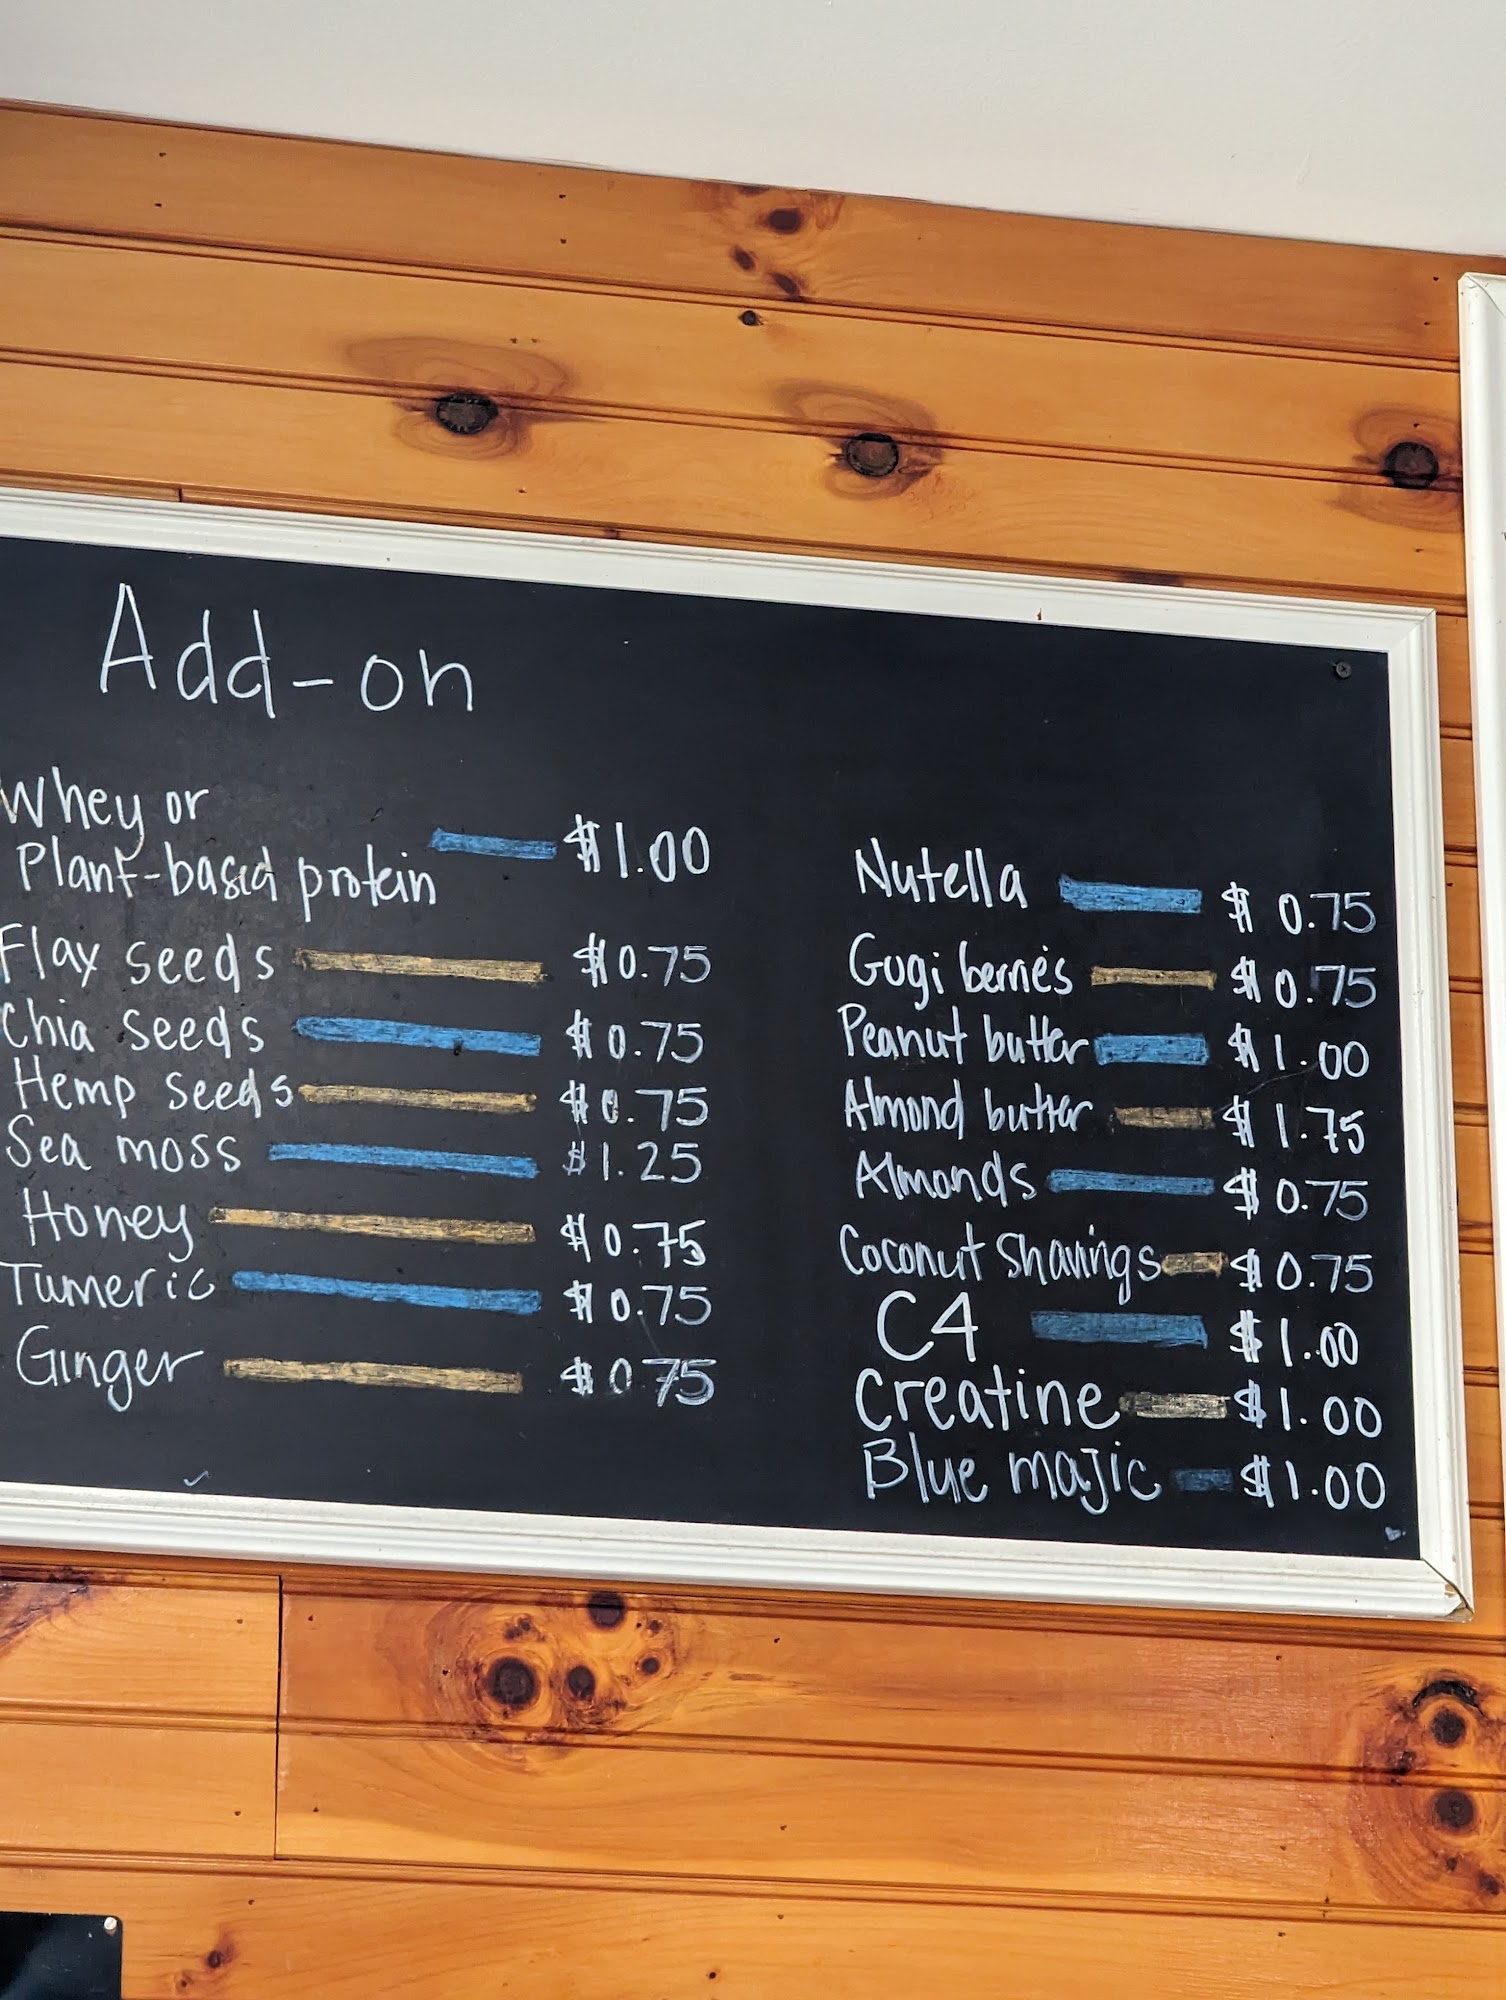 Add-on
Whey or
Plant-based protein $1.00
Flax seeds $0.75
Chia seeds $0.75
Hemp seeds $0.75
Sea moss $1.25
Honey $0.75
Tumeric $0.75
Ginger $0.75
Nutella $0.75
Gogi berries $0.75
Peanut butter $1.00
Almond butter $1.75
Almonds $0.75
Coconut shavings $0.75
C4 $1.00
Creatine $1.00
Blue majic $1.00